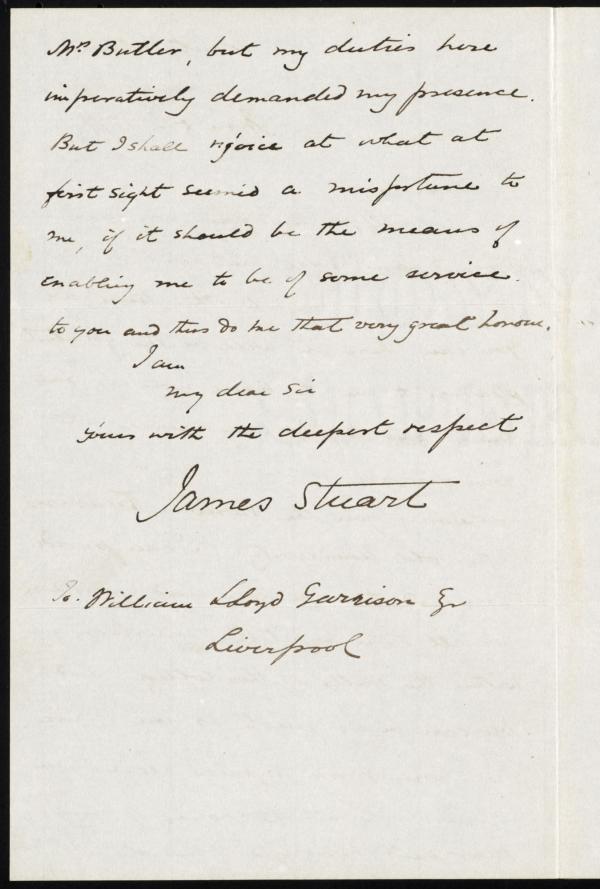 Mrs Butler, but my duties here
imperatively demanded my presence.
But I shall rejoice at what at
first sight seemed a misfortune to
me, if it should be the means of
enabling me to be of some service
to you and thus do me that very great honour.
I am
my dear Sir
yours with the deepest respect
James Stuart
To. William Lloyd Garrison Esqr
Liverpool